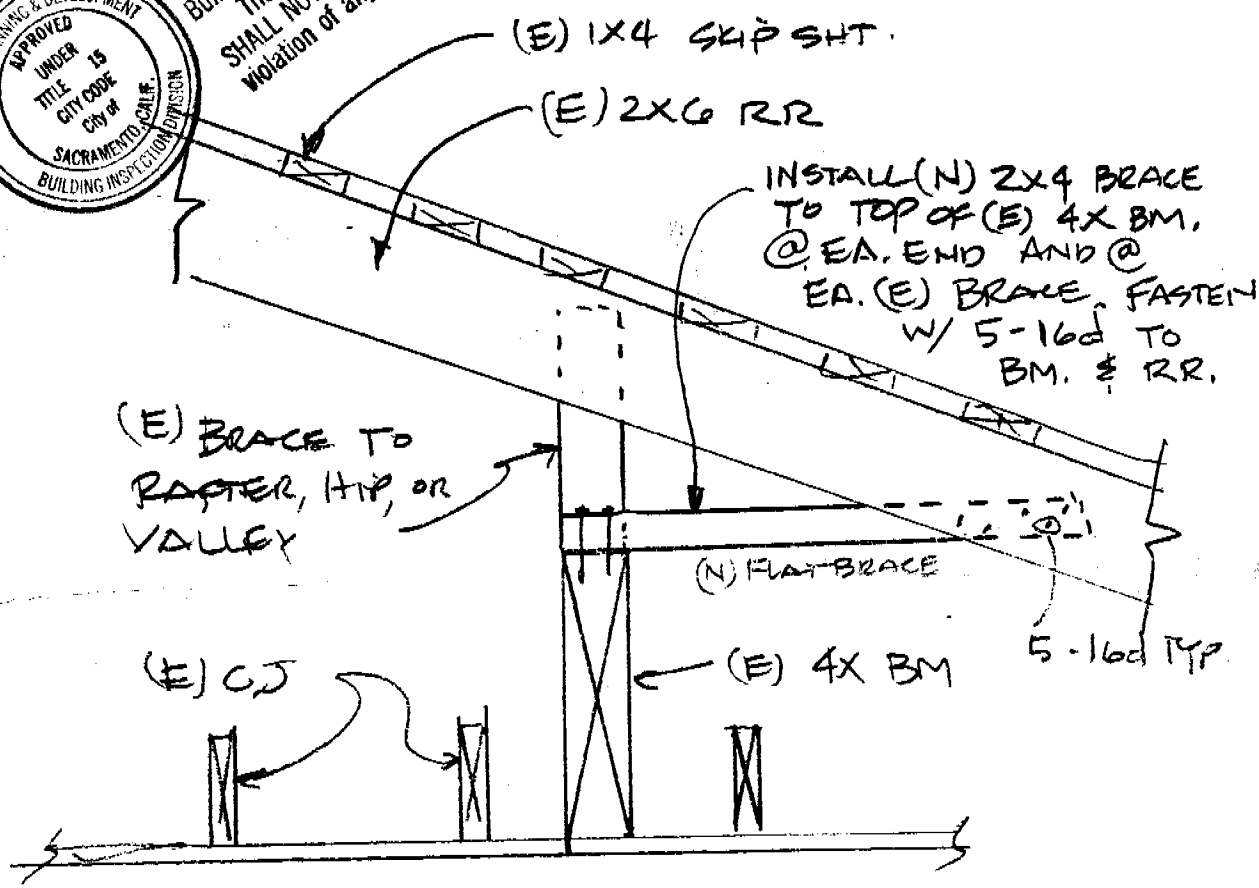 NNING & DEVELOPMENT
APPROVED
UNDER
TITLE 15
CITY CODE
City of
SACRAMENTO, CALIF.
BUILDING INSPECTION DIVISION
SHALL NO
violation of any
(E) 1X4 SKIP SHT.
(E) 2X6 RR
INSTALL (N) 2X4 BRACE
TO TOP OF (E) 4X BM.
@ EA. END AND @
EA. (E) BRACE. FASTEN
W/ 5-16d TO
BM. & RR.
(E) BRACE TO
RAFTER, HIP, OR
VALLEY
(N) FLAT BRACE
(E) CJ
(E) 4X BM
5-16d TYP.